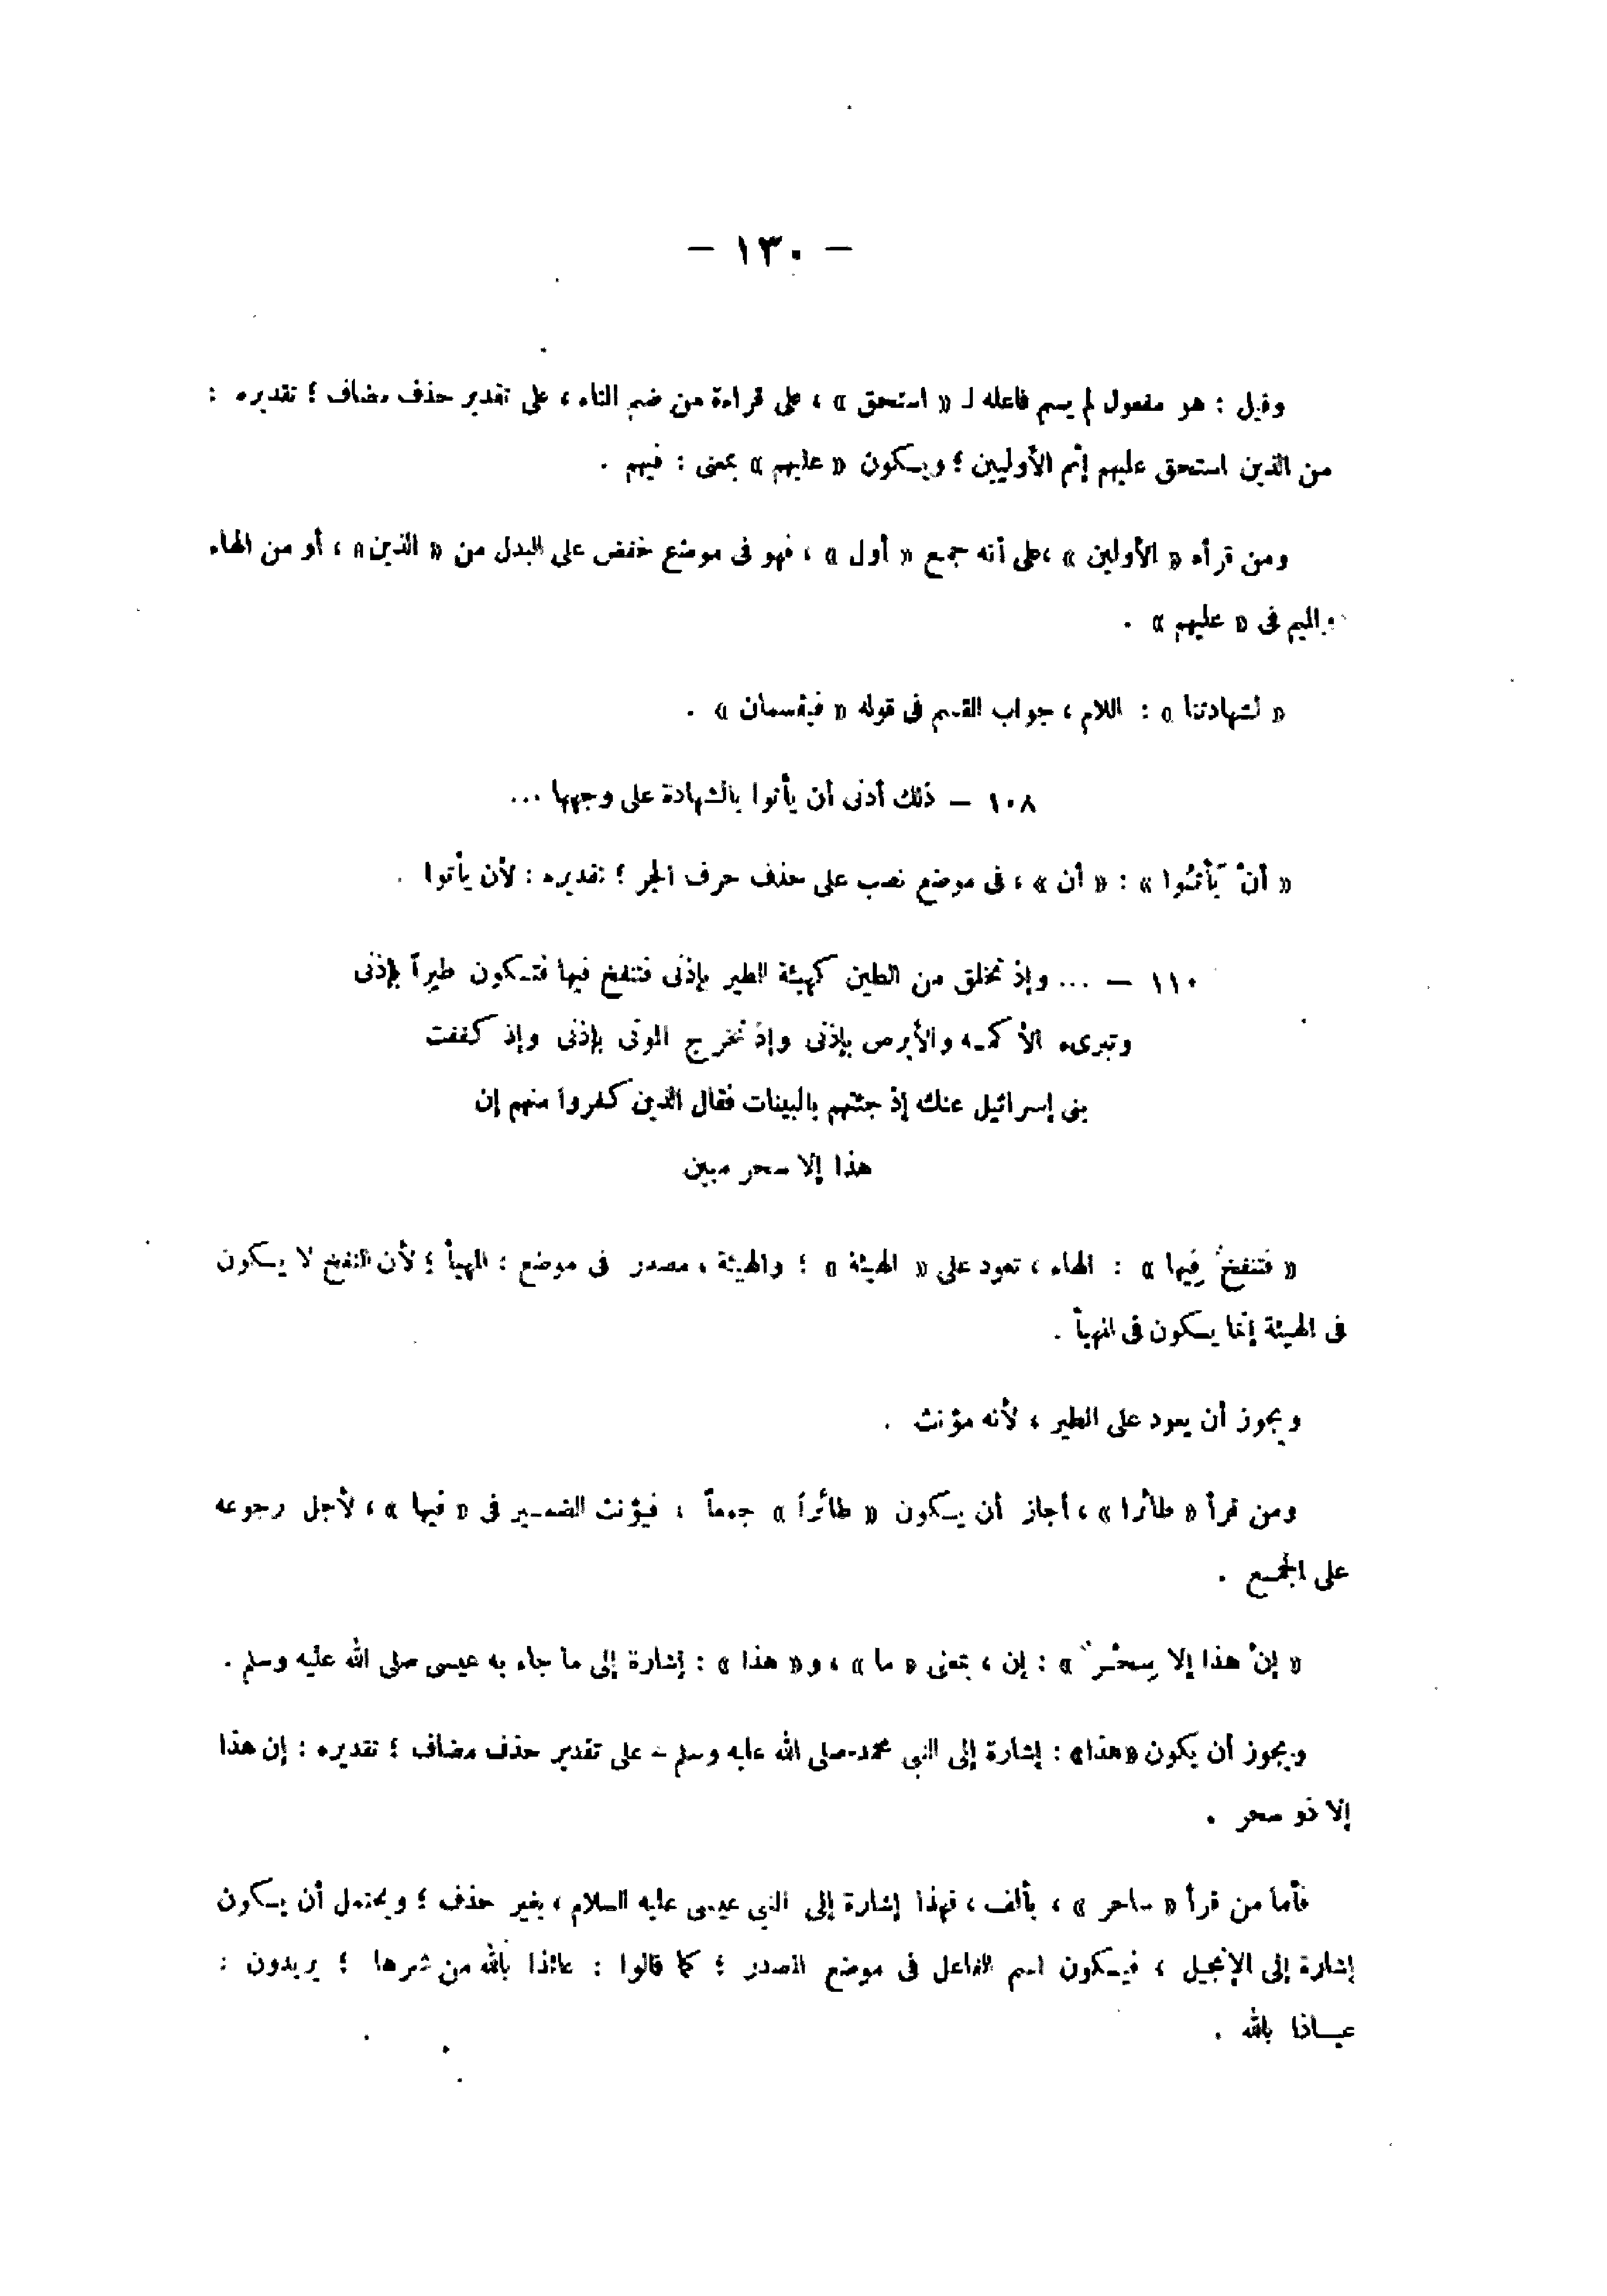 — ١٣٠ —
وقيل : هو مفعول لم يسم فاعله لـ « استحق » ، على قراءة من ضم التاء ، على تقدير حذف مضاف ؛ تقديره :
من الذين استحق عليهم إثم الأوليين ؛ ويكون « عليهم » بمعنى : فيهم .
ومن قرأه « الأولين » ، على أنه جمع « أول » ، فهو فى موضع خفض على البدل من « الذين » ، أو من الهاء
والميم فى « عليهم » .
« لشهادتنا » : اللام ، جواب القسم فى قوله « فيقسمان » .
١٠٨ — ذلك أدنى أن يأتوا بالشهادة على وجهها ...
« أنْ يَأتُوا » : « أن » ، فى موضع نصب على حذف حرف الجر ؛ تقديره : لأن يأتوا .
١١٠ — ... وإذ تخلق من الطين كهيئة الطير بإذنى فتنفخ فيها فتكون طيراً بإذنى
وتبرىء الأكمه والأبرص بإذنى وإذ تخرج الموتى بإذنى وإذ كففت
بنى إسرائيل عنك إذ جئتهم بالبينات فقال الذين كفروا منهم إن
هذا إلا سحر مبين
« فتنفخُ فِيها » : الهاء ، تعود على « الهيئة » ؛ والهيئة ، مصدر فى موضع : المهيأ ؛ لأن النفخ لا يكون
فى الهيئة إنما يكون فى المهيأ .
ويجوز أن يعود على الطير ، لأنه مؤنث .
ومن قرأ « طائرا » ، أجاز أن يكون « طائراً » جمعاً ، فيؤنث الضمير فى « فيها » ، لأجل رجوعه
على الجمع .
« إنْ هذا إلا سِحْرٌ » : إن ، بمعنى « ما » ، و« هذا » : إشارة إلى ما جاء به عيسى صلى الله عليه وسلم .
ويجوز أن يكون «هذا» : إشارة إلى النبى محمد-صلى الله عليه وسلم - على تقدير حذف مضاف ؛ تقديره : إن هذا
إلا ذو سحر .
فأما من قرأ « ساحر » ، بألف ، فهذا إشارة إلى النبي عيسى عليه السلام ، بغير حذف ؛ ويحتمل أن يكون
إشارة إلى الإنجيل ، فيكون اسم الفاعل فى موضع المصدر ؛ كما قالوا : عائذا بالله من شرها ؛ يريدون :
عياذا بالله .